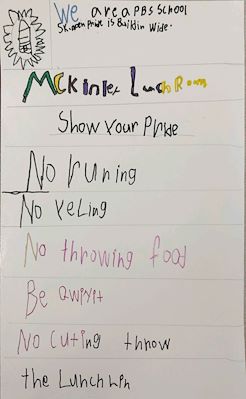 We are a PBS SCHOOL
Pride is Buildin Wide.
MCKinley Lunch Room
Show Your Pride
No runing
No Yeling
No throwing food
Be qwiyit
No cuting throw
the Lunch Lin